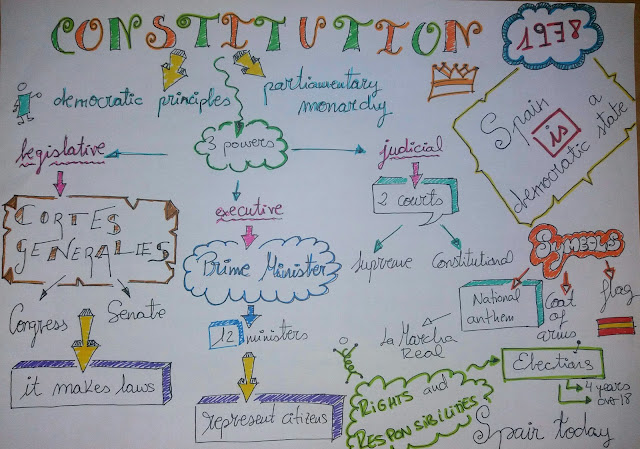 CONSTITUTION
1978
democratic principles
parliamentary
monarchy
Spain
is
a
democratic state
3 powers
legislative
judicial
executive
CORTES
GENERALES
2 courts
Prime Minister
Supreme
Constitutional
SYMBOLS
National
anthem
Coat
of
arms
flag
Congress
Senate
12 ministers
La Marcha
Real
it makes laws
represent citizens
Elections
4 years
over 18
RIGHTS and
RESPONSIBILITIES
Spain today